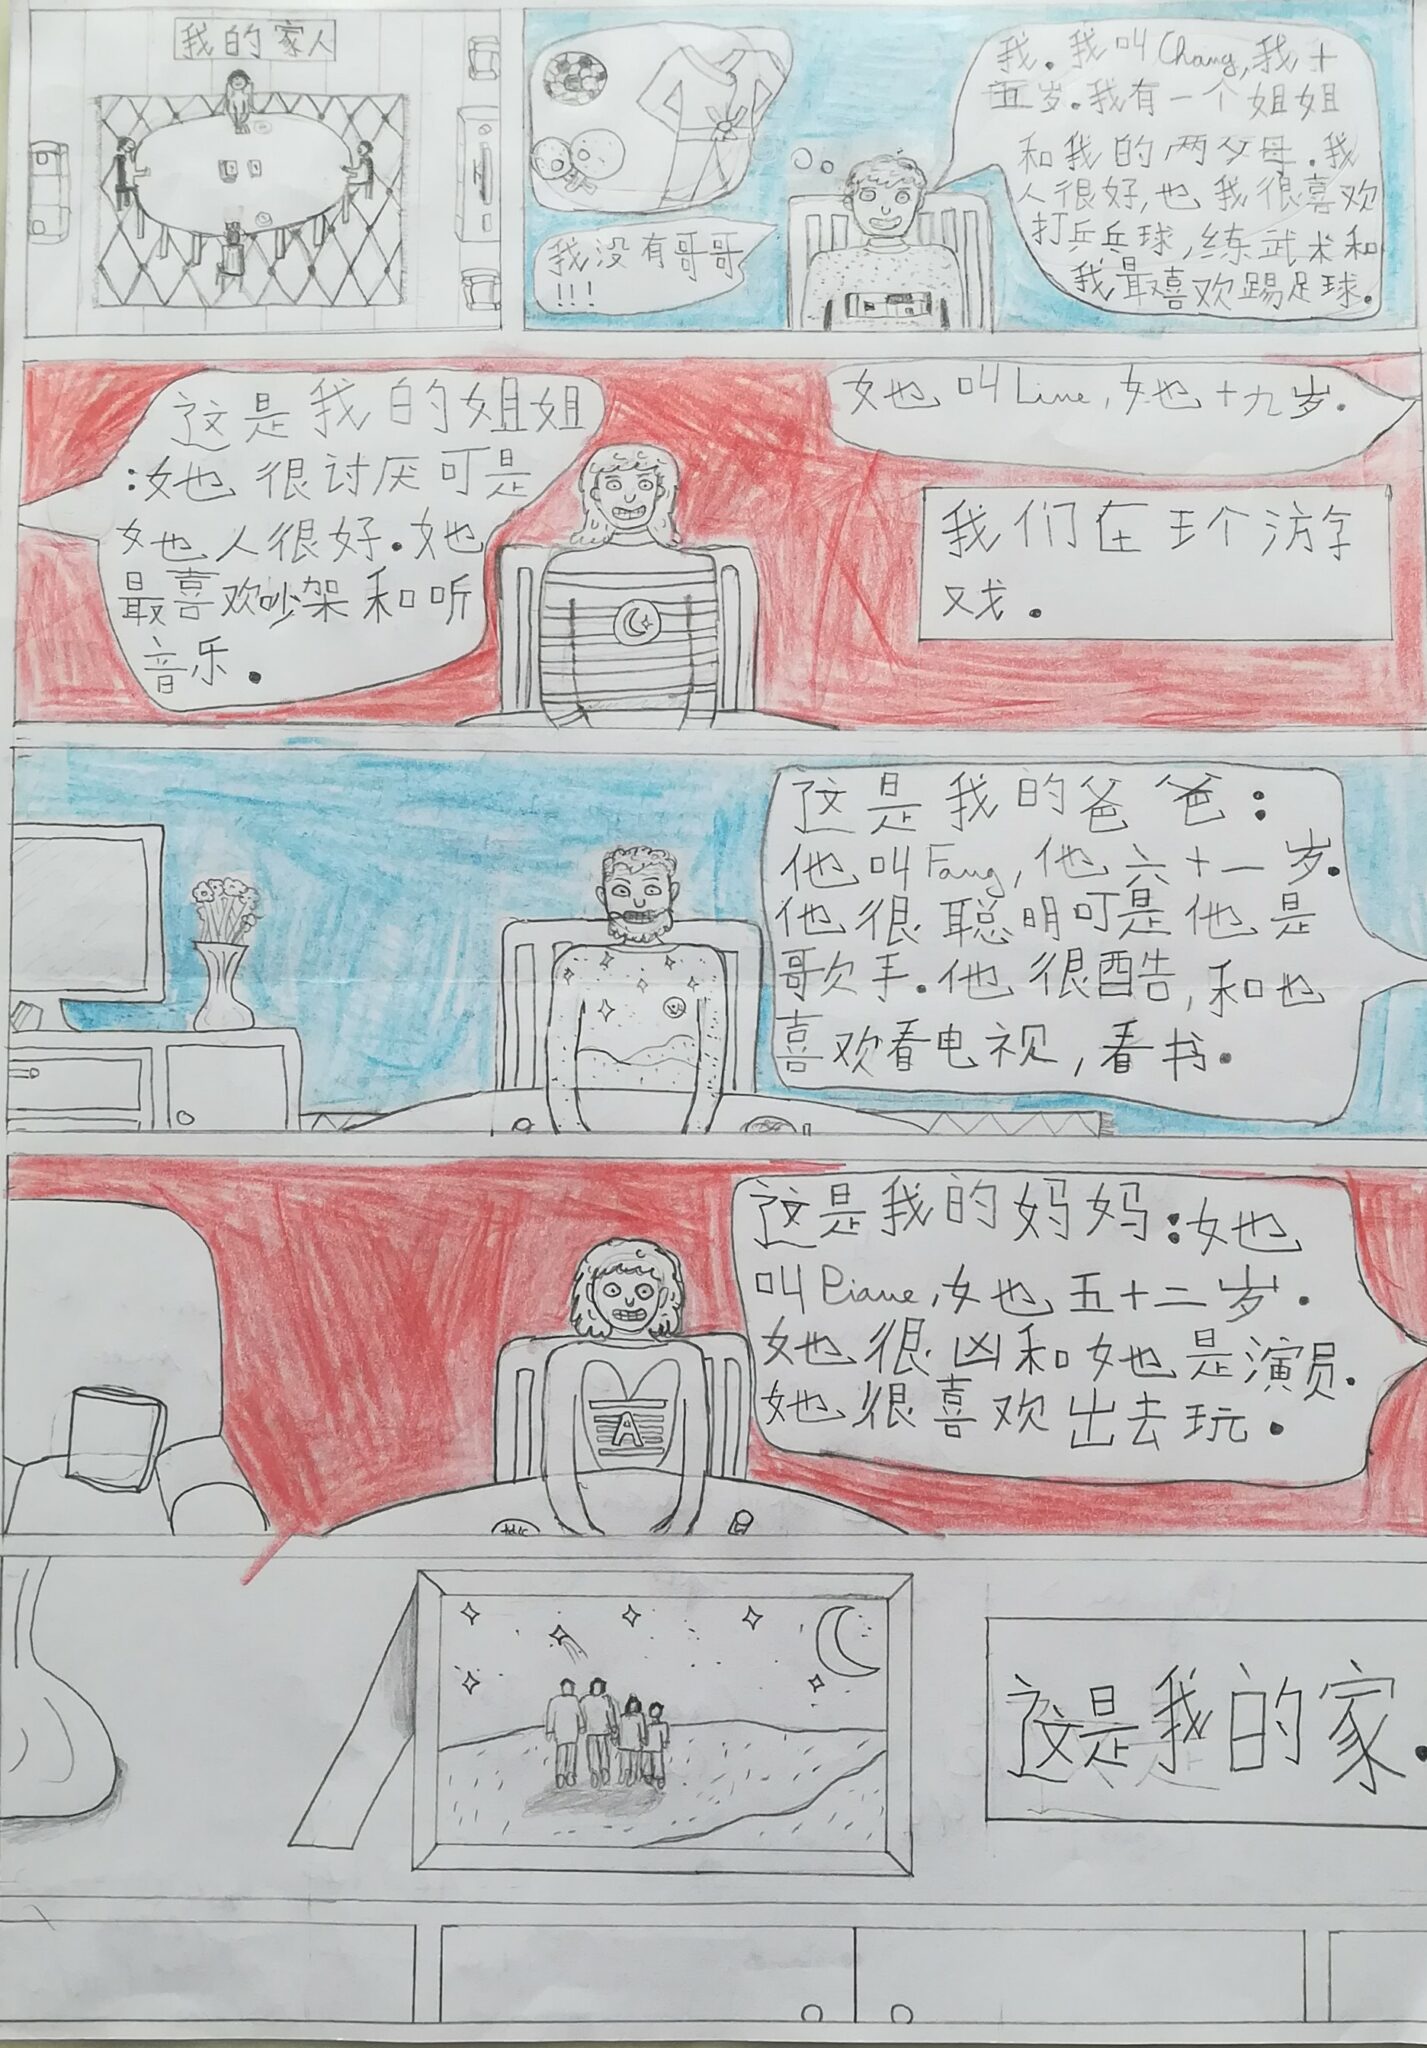 我的家人
我.我叫Chang,我十
五岁.我有一个姐姐
和我的两父母.我
人很好,也我很喜欢
打乒乓球,练武术和
我最喜欢踢足球.
我没有哥哥
!!!
这是我的姐姐
:她很讨厌可是
她人很好.她
最喜欢吵架和听
音乐.
她叫Line,她十九岁.
我们在
戏.
这是我的爸爸:
他叫Fang,他六十一岁.
他很聪明可是他是
歌手.他很酷,和也
喜欢看电视,看书.
这是我的妈妈:她
叫Piane,她五十二岁.
她很凶和她是演员.
她很喜欢出去玩.
A
这是我的家.